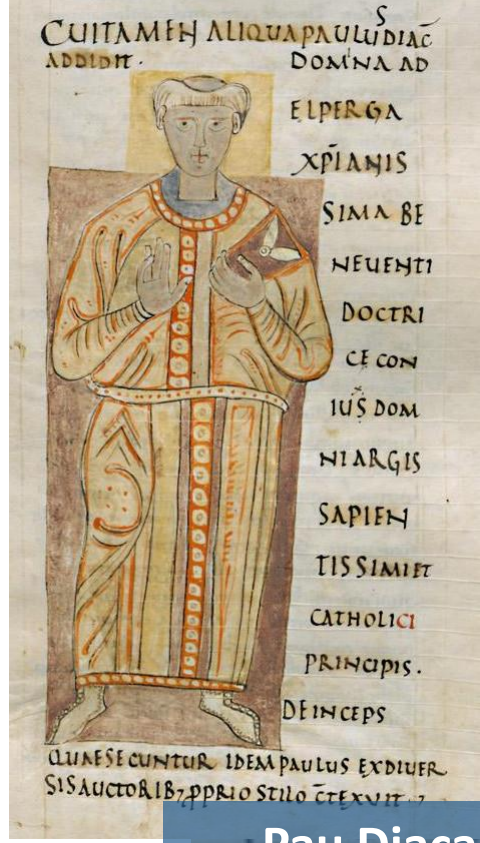 CUITAMEN ALIQUA PAULUS DIAC̄
ADDIDIT. DOMNA AD
ELPERGA
XP̄IANIS
SIMA BE
NEUENTI
DOCTRI
CE CON
IUS DOM
NIARGIS
SAPIEN
TISSIMI ET
CATHOLICI
PRINCIPIS.
DEINCEPS
QUAESECUNTUR IDEM PAULUS EXDIUER
SISAUCTORIB; PPRIO STILO C̄TEXUIT
Pau Diaca